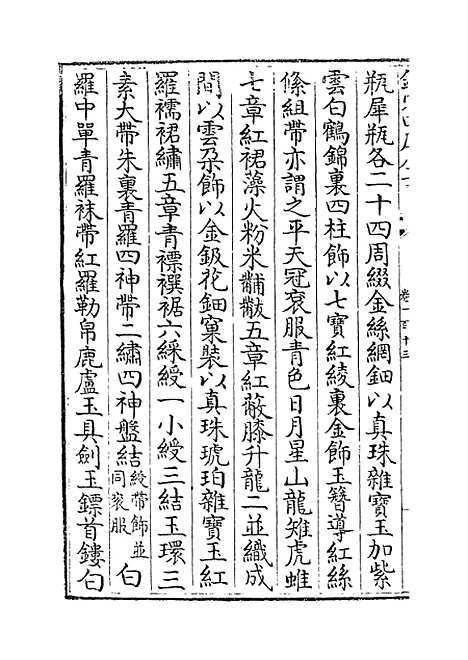 卷一百十三
瓶犀瓶各二十四周綴金絲網鈿以真珠雜寶玉加紫
雲白鶴錦裏四柱飾以七寶紅綾裏金飾玉簪導紅絲
絛組帶亦謂之平天冠衮服青色日月星山龍雉虎蜼
七章紅裙藻火粉米黼黻五章紅蔽膝升龍二並織成
間以雲朶飾以金鈒花鈿窠裝以真珠琥珀雜寶玉紅
羅襦裙繡五章青褾襈裾六綵綬一小綬三結玉環三
素大帶朱裏青羅四神帶二繡四神盤結綬帶飾並同衮服白
羅中單青羅袜帶紅羅勒帛鹿盧玉具劍玉鏢首鏤白